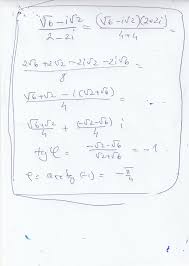 √6 - i√2 / 2 - 2i = (√6 - i√2)(2+2i) / 4+4 =
2√6 + 2√2 - 2i√2 - 2i√6 / 8
√6 + √2 - i(√2+√6) / 4 =
√6+√2 / 4 + (-√2-√6) / 4 i
tg φ = -√2-√6 / √2+√6 = -1
φ = arctg(-1) = -π/4